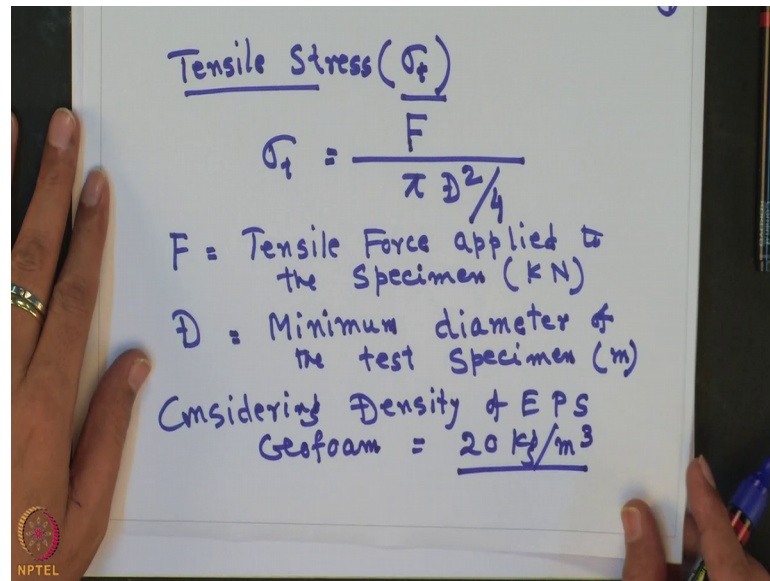 Tensile Stress (σt)
σt = F / π D²/4
F = Tensile Force applied to
the Specimen (KN)
D = Minimum diameter of
the test Specimen (m)
Considering Density of EPS
Geofoam = 20 kg/m³
NPTEL